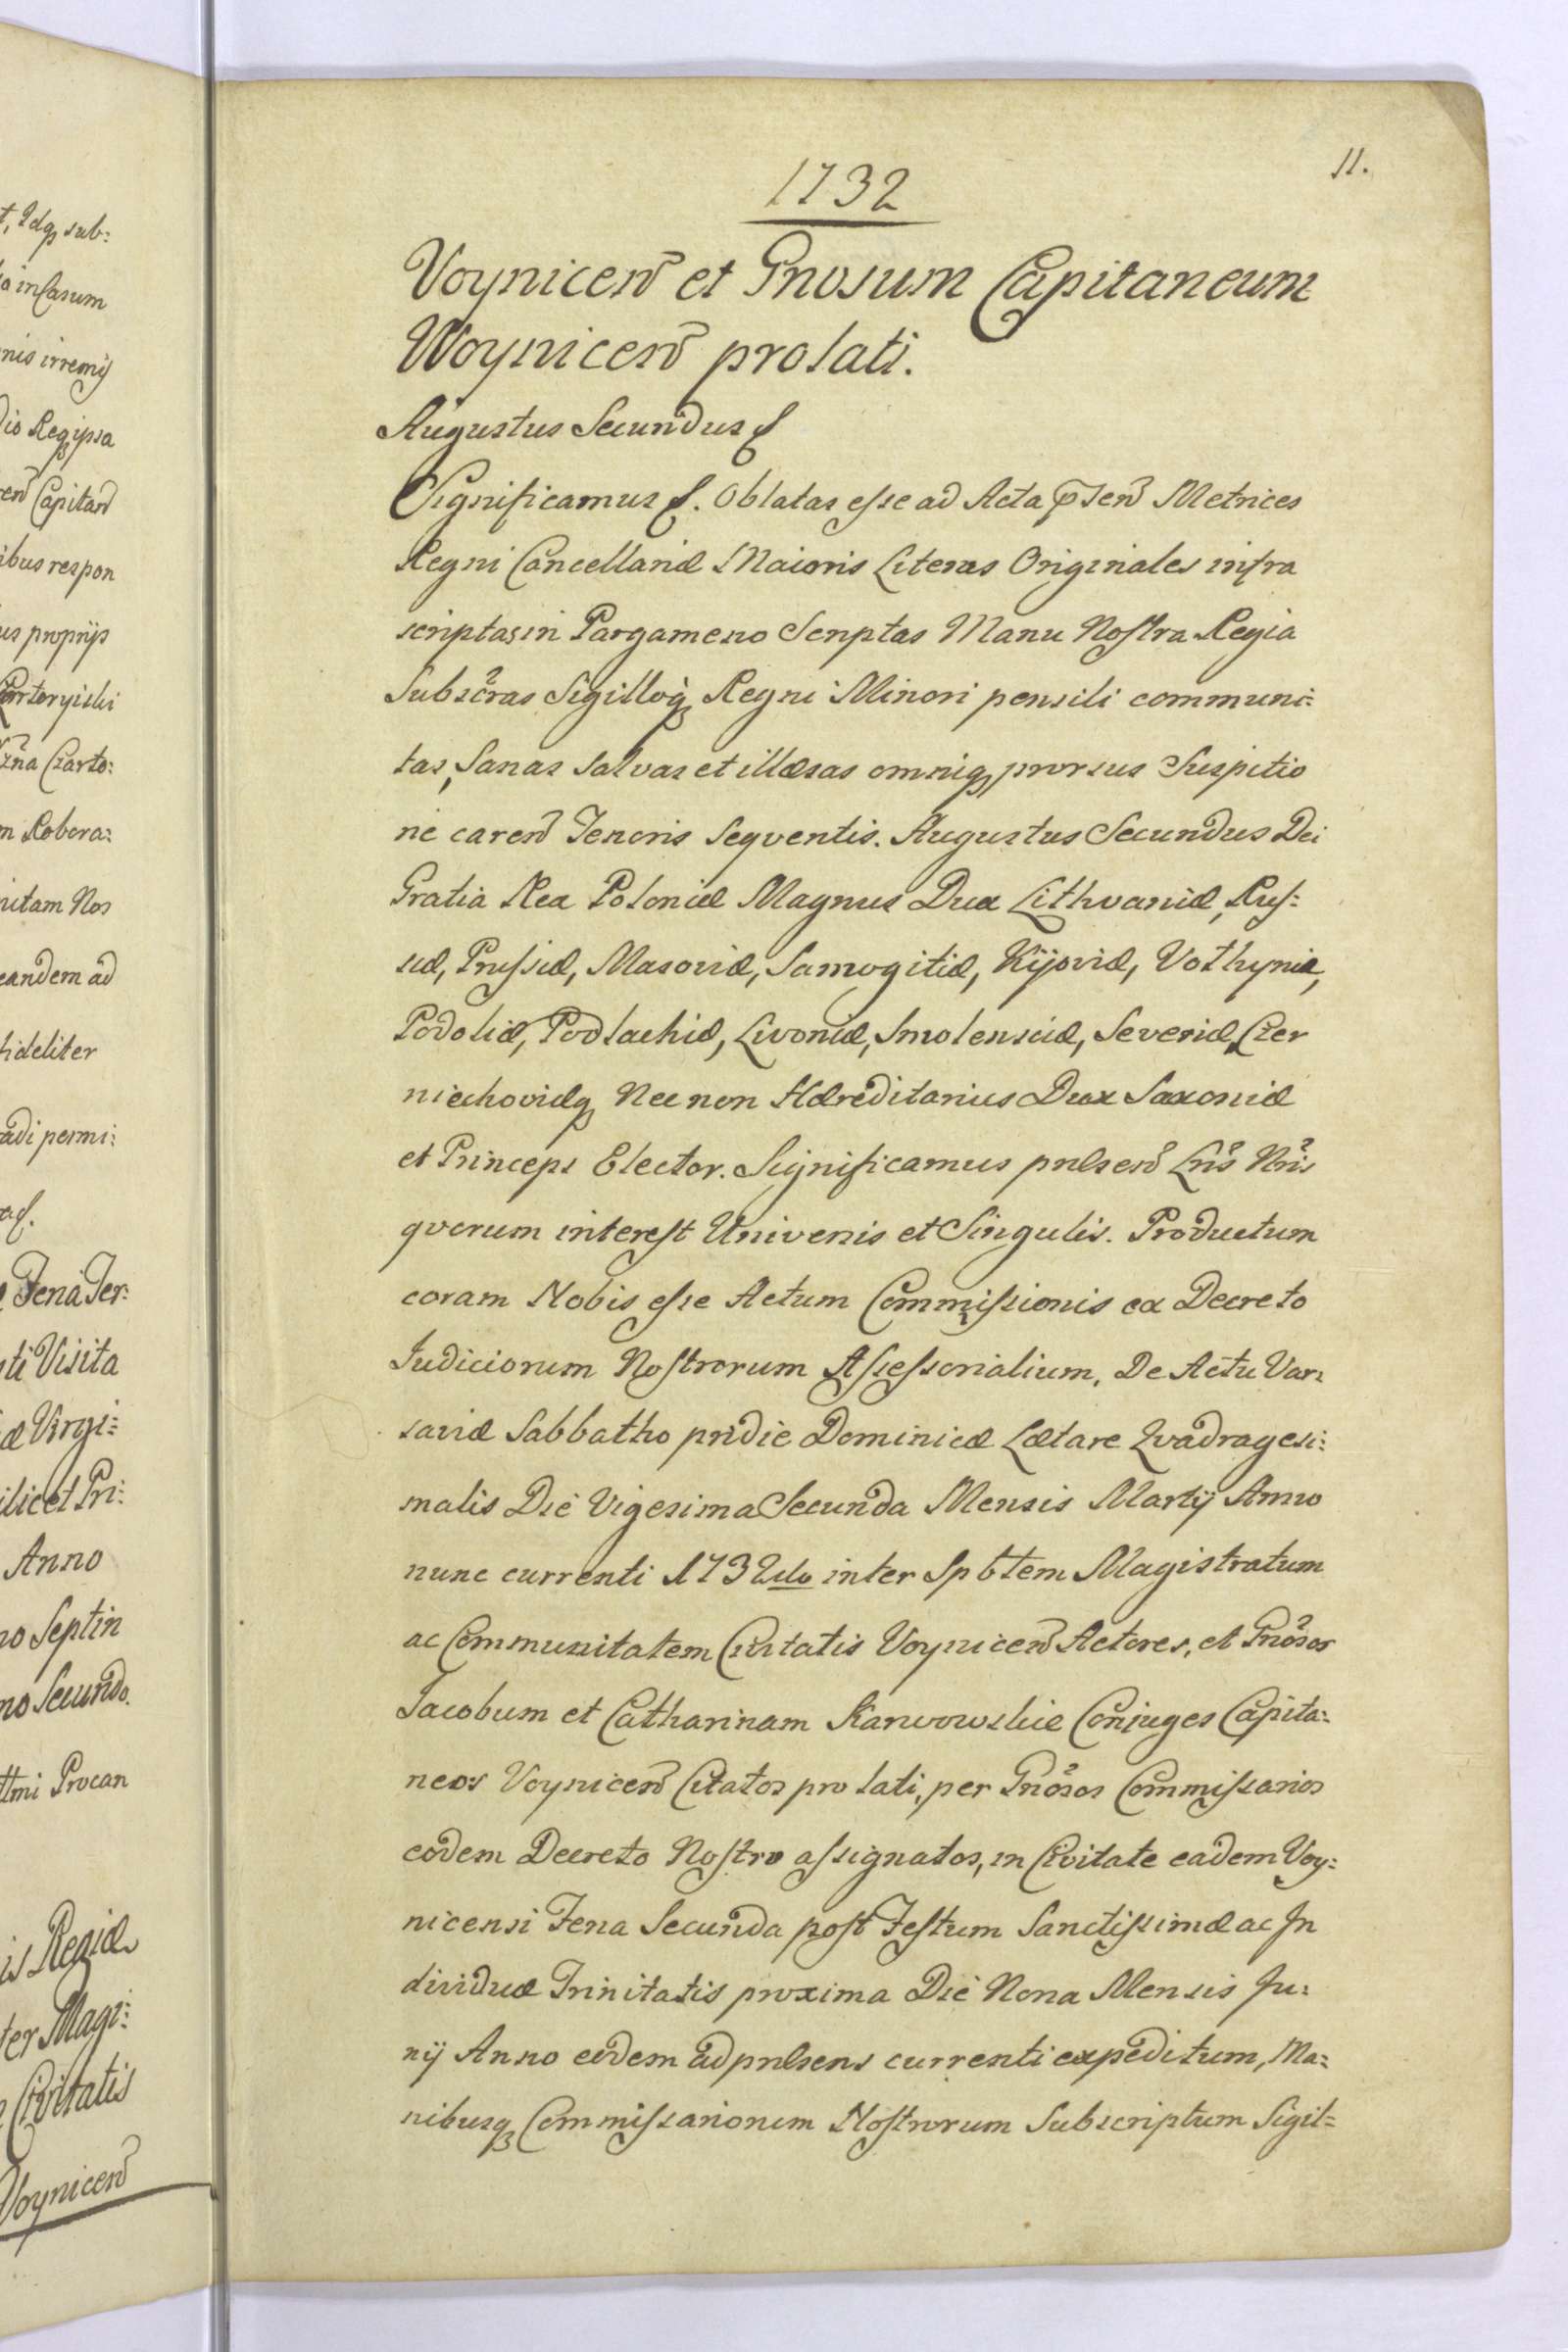 t, Idq sub:
in Casum
nis irremis
dio Regipsa
Capitan
ibus respon
us propriis
Czartoryiski
zna Czarto:
m Robora:
Nos
eandem ad
fideliter
adi permi:
Feria Ter:
Visita
æ Virgi:
ilicet Pri:
Anno
no Septin
mo Secundo.
ttmi Procan
is Regiæ
ter Magi:
Civitatis
Voynicen̄
11.
1732
Voynicen̄ et Gnosum Capitaneum
Woynicen̄ prolati.
Augustus Secundus &
Significamus &. Oblatas eſse ad Acta p̄sen̄ Metrices
Regni Cancellariæ Maioris Literas Originales infra
scriptas in Pargameno Scriptas Manu Noſtra Regia
Subscr̃as Sigilloq̃ Regni Minori pensili communi:
tas, Sanas Salvas et illæsas omniq̃ prorsus Suspitio
ne caren̄ Tenoris Seqventis. Augustus Secundus Dei
Gratia Rex Poloniæ Magnus Dux Lithvaniæ, Ruſ:
siæ, Pruſsiæ, Masoviæ, Samogitiæ, Kijoviæ, Volhyniæ,
Podoliæ, Podlachiæ, Livoniæ, Smolensciæ, Severiæ, Czer
niechoviæq̃ Nec non Hæreditarius Dux Saxoniæ
et Princeps Elector. Significamus præsen̄ Lrı̃s Nrı̃s
qvorum intereſt Univenis et Singulis. Productum
coram Nobis eſse Actum Commiſsionis ex Decreto
Judiciorum Noſtrorum Aſseſsorialium, De Actu Var:
saviæ Sabbatho pridie Dominicæ Lætare Qvadragesi:
malis Die Vigesima Secunda Mensis Martij Anno
nunc currenti 1732do inter Spbtem Magistratum
ac Communitatem Civitatis Voynicen̄ Actores, et Gnõsos
Jacobum et Catharinam Karwowskie Conjuges Capita:
neos Voynicen̄ Citatos prolati, per Gnõsos Commiſsarios
eodem Decreto Noſtro aſsignatos, in Civitate eadem Voy:
nicensi Feria Secunda poſt Feſtum Sanctiſsimæ ac In
dividuæ Trinitatis proxima Die Nona Mensis Ju:
nij Anno eodem ad præsens currenti expeditum, Ma:
nibusq̃ Commiſsariorum Noſtrorum Subscriptum Sigil=